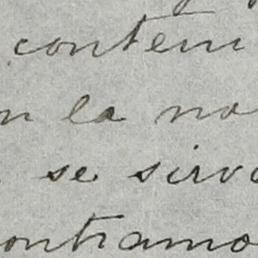 conteni
n la no
se sirva
ontramo